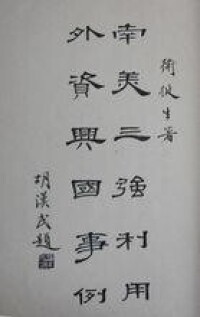 衛挺生著
南美三強利用
外資興國事例
胡漢民題